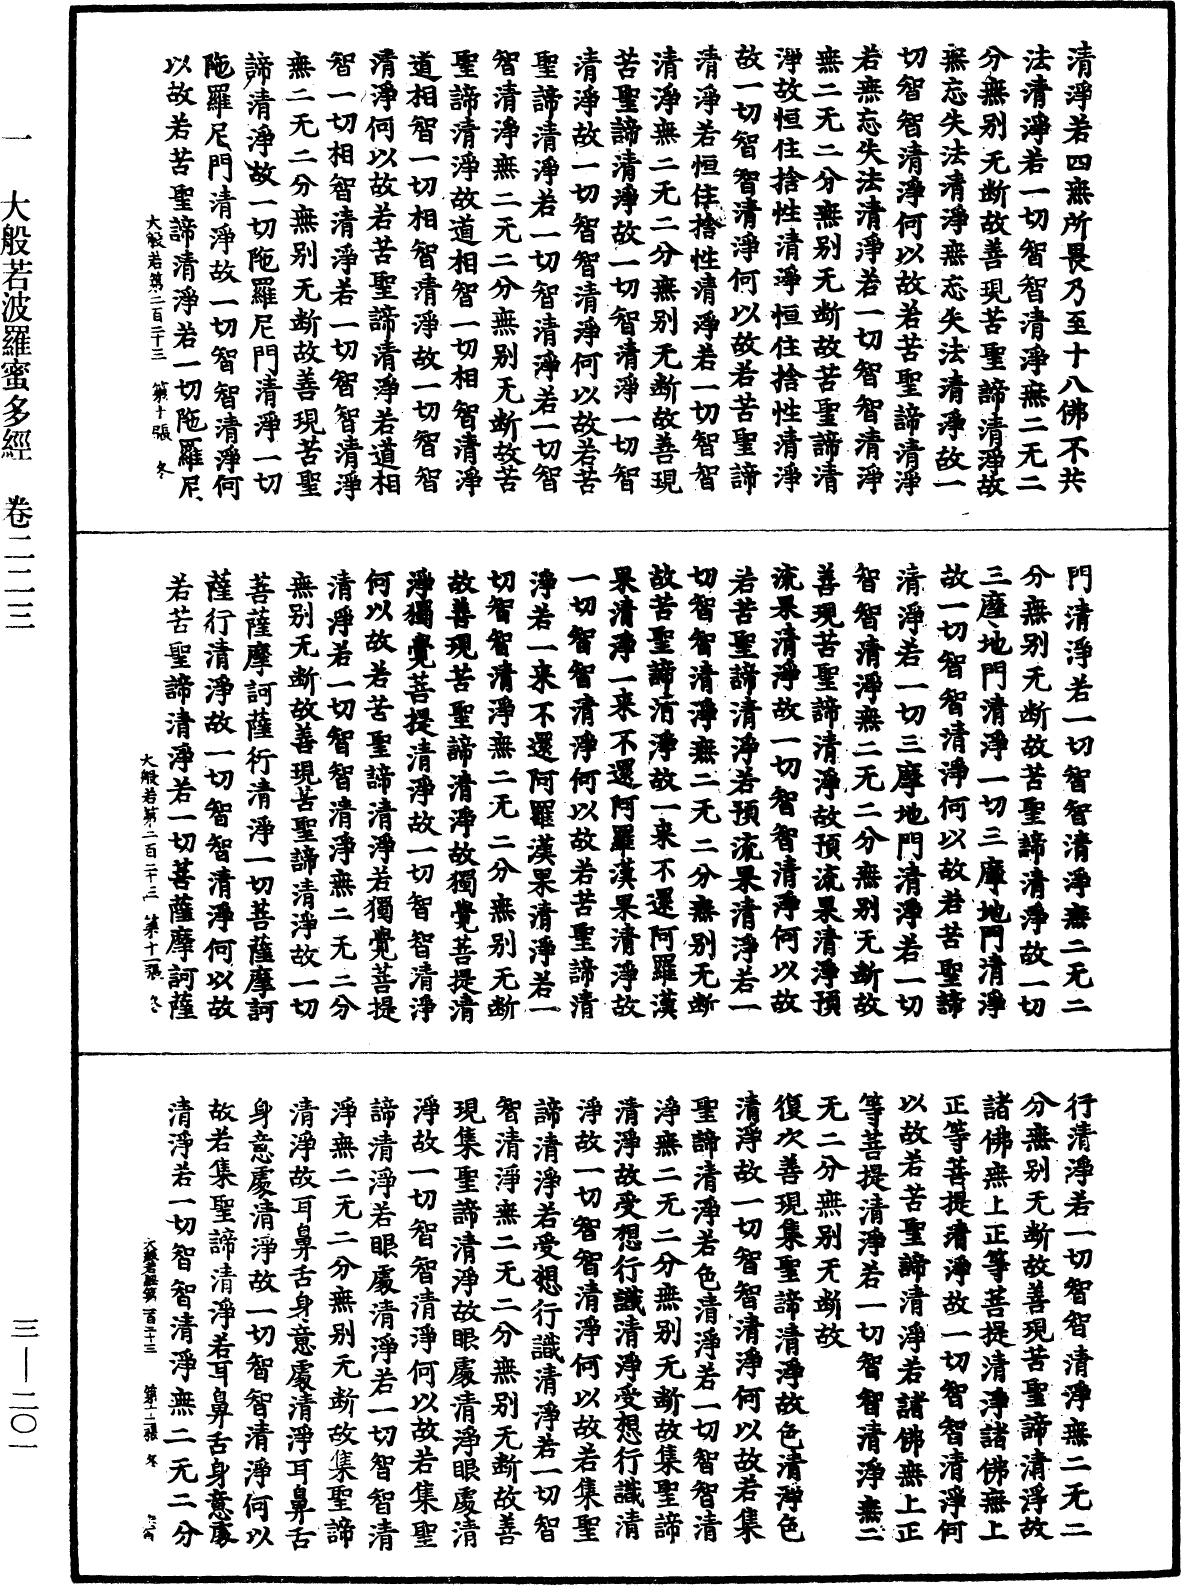 清淨若四無所畏乃至十八佛不共
法清淨若一切智智清淨無二无二
分無別无斷故善現苦聖諦清淨故
無忘失法清淨無忘失法清淨故一
切智智清淨何以故若苦聖諦清淨
若無忘失法清淨若一切智智清淨
無二无二分無別无斷故苦聖諦清
淨故恒住捨性清淨恒住捨性清淨
故一切智智清淨何以故若苦聖諦
清淨若恒住捨性清淨若一切智智
清淨無二无二分無別无斷故善現
苦聖諦清淨故一切智清淨一切智
清淨故一切智智清淨何以故若苦
聖諦清淨若一切智清淨若一切智
智清淨無二无二分無別无斷故苦
聖諦清淨故道相智一切相智清淨
道相智一切相智清淨故一切智智
清淨何以故若苦聖諦清淨若道相
智一切相智清淨若一切智智清淨
無二无二分無別无斷故善現苦聖
諦清淨故一切陁羅尼門清淨一切
陁羅尼門清淨故一切智智清淨何
以故若苦聖諦清淨若一切陁羅尼
大般若第二百二十三 第十張 冬
門清淨若一切智智清淨無二无二
分無別无斷故苦聖諦清淨故一切
三摩地門清淨一切三摩地門清淨
故一切智智清淨何以故若苦聖諦
清淨若一切三摩地門清淨若一切
智智清淨無二无二分無別无斷故
善現苦聖諦清淨故預流果清淨預
流果清淨故一切智智清淨何以故
若苦聖諦清淨若預流果清淨若一
切智智清淨無二无二分無別无斷
故苦聖諦清淨故一来不還阿羅漢
果清淨一来不還阿羅漢果清淨故
一切智智清淨何以故若苦聖諦清
淨若一来不還阿羅漢果清淨若一
切智智清淨無二无二分無別无斷
故善現苦聖諦清淨故獨覺菩提清
淨獨覺菩提清淨故一切智智清淨
何以故若苦聖諦清淨若獨覺菩提
清淨若一切智智清淨無二无二分
無別无斷故善現苦聖諦清淨故一切
菩薩摩訶薩行清淨一切菩薩摩訶
薩行清淨故一切智智清淨何以故
若苦聖諦清淨若一切菩薩摩訶薩
大般若第二百二十三 第十一張 冬
行清淨若一切智智清淨無二无二
分無別无斷故善現苦聖諦清淨故
諸佛無上正等菩提清淨諸佛無上
正等菩提清淨故一切智智清淨何
以故若苦聖諦清淨若諸佛無上正
等菩提清淨若一切智智清淨無二
无二分無別无斷故
復次善現集聖諦清淨故色清淨色
清淨故一切智智清淨何以故若集
聖諦清淨若色清淨若一切智智清
淨無二无二分無別无斷故集聖諦
清淨故受想行識清淨受想行識清
淨故一切智智清淨何以故若集聖
諦清淨若受想行識清淨若一切智
智清淨無二无二分無別无斷故善
現集聖諦清淨故眼處清淨眼處清
淨故一切智智清淨何以故若集聖
諦清淨若眼處清淨若一切智智清
淨無二无二分無別无斷故集聖諦
清淨故耳鼻舌身意處清淨耳鼻舌
身意處清淨故一切智智清淨何以
故若集聖諦清淨若耳鼻舌身意處
清淨若一切智智清淨無二无二分
第十二張 冬
一 大般若波羅蜜多經 卷二二三
三—二〇一